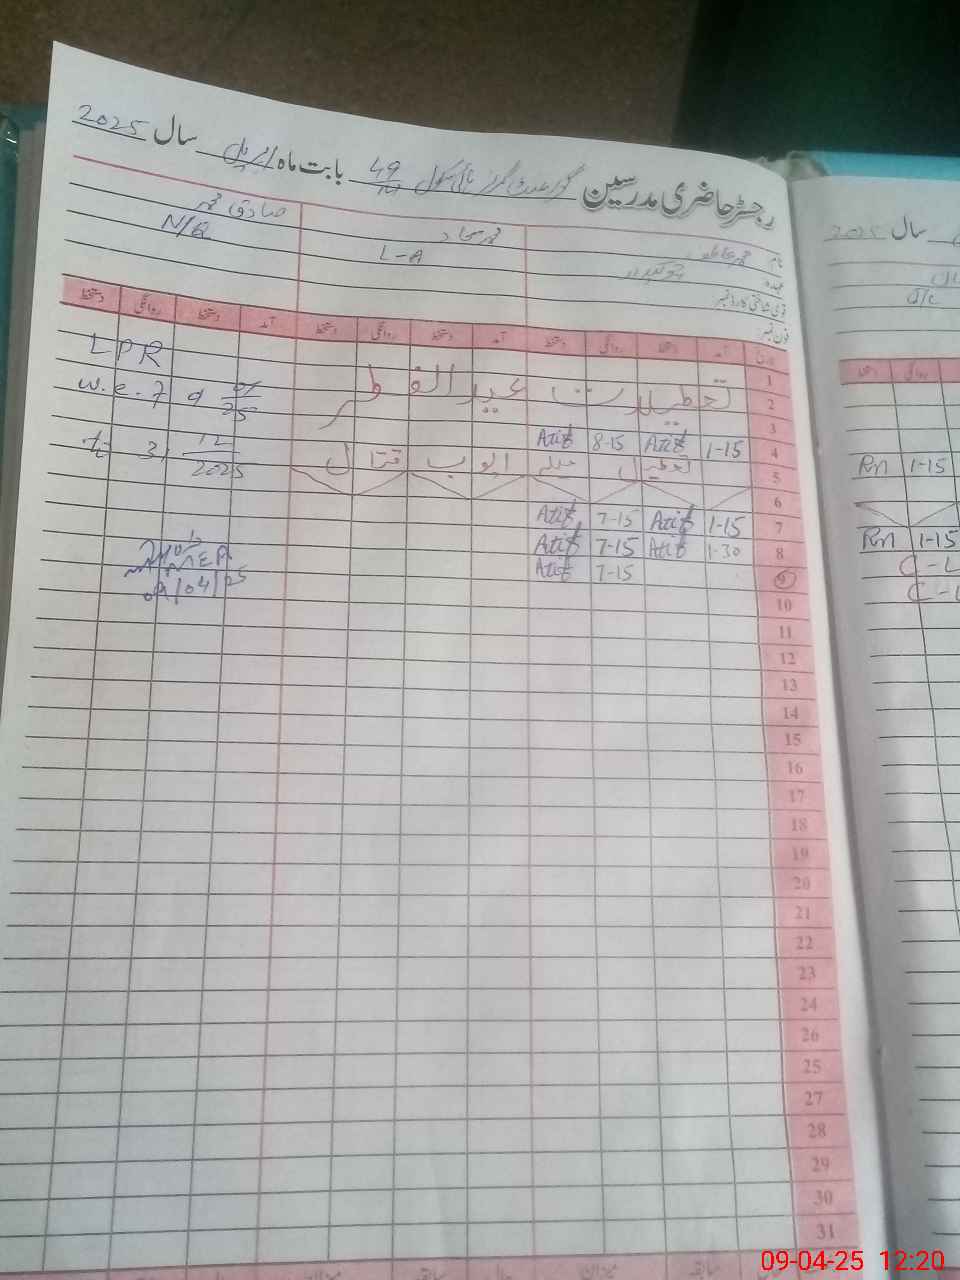 رجسٹر حاضری مدرسین گورنمنٹ گرلز ہائی سکول 49 بابت ماہ اپریل سال 2025
نام محمد عاطف محمد سجاد صادق محمد
عہدہ چوکیدار L-A N/Q
قومی شناختی کارڈ نمبر
فون نمبر
تاریخ آمد دستخط روانگی دستخط آمد دستخط روانگی دستخط آمد دستخط روانگی دستخط
1 LPR
2 تعطیلات عید الفطر w.e.7
3
4 1-15 Atif 8-15 Atif
5 تعطیل میلہ ایوب قتال 31 12 2025
6
7 1-15 Atif 7-15 Atif
8 1-30 Atif 7-15 Atif
9 7-15 Atif 09/04/25
10
11
12
13
14
15
16
17
18
19
20
21
22
23
24
26
25
27
28
29
30
31
سال 2025
J/c
روانگی دستخط
1-15 Rn
1-15 Rn
C-L
C-L
09-04-25 12:20